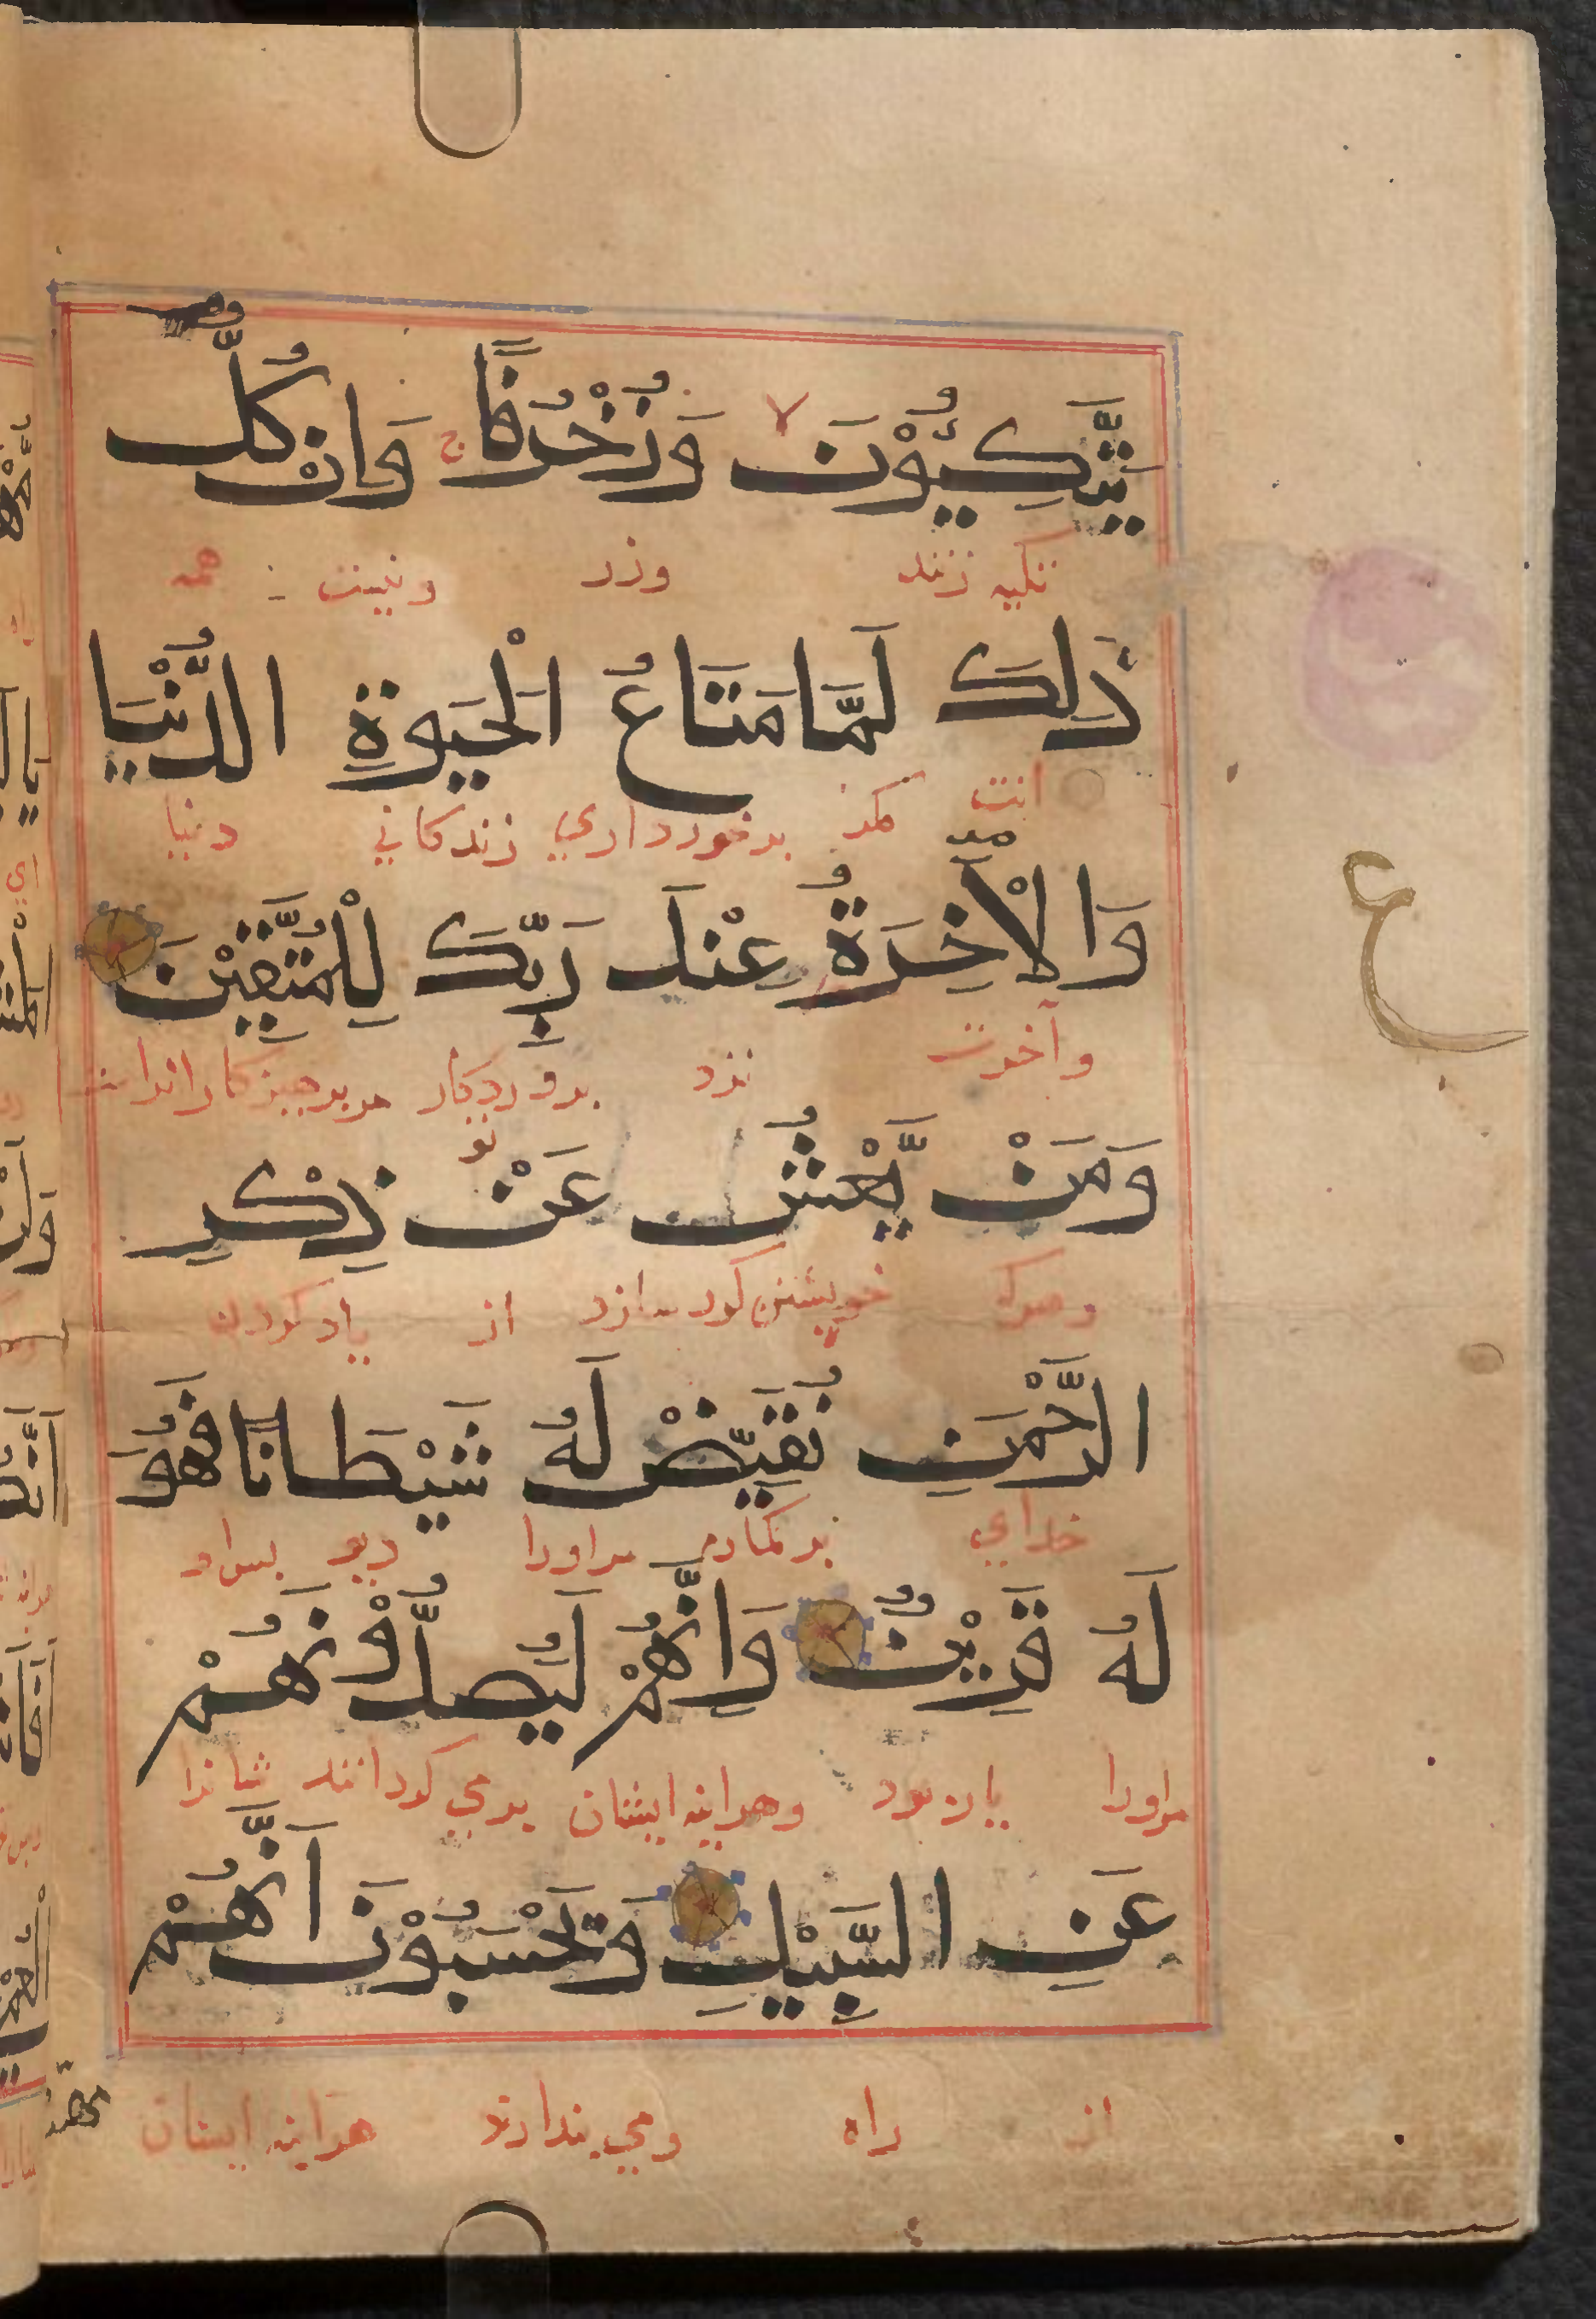 يَّتَّكِـُٔوْنَ لا وَزُخْرُفًا ج وَاِنْ كُلُّ
تکیه زنند وزر وزینت همه
ذٰلِكَ لَمَّا مَتَاعُ الْحَيٰوةِ الدُّنْيَا
انست مگر برخورداري زندكاني دنيا
وَالْاٰخِرَةُ عِنْدَ رَبِّكَ لِلْمُتَّقِيْنَ
وآخرت نزد پروردكار تو مر پرهيزكارانراست
وَمَنْ يَّعْشُ عَنْ ذِكْرِ
وهرکه خویشتن کور سازد از یاد کردن
الرَّحْمٰنِ نُقَيِّضْ لَهٗ شَيْطَانًا فَهُوَ
خداي بر كماريم مراورا ديو پس او
لَهٗ قَرِيْنٌ وَاِنَّهُمْ لَيَصُدُّوْنَهُمْ
مراورا يار بود وهراينه ايشان برمي كردانند شانرا
عَنِ السَّبِيْلِ وَيَحْسَبُوْنَ اَنَّهُمْ
از راه ومي پندارند هراينه ايشان
مهتد
ع